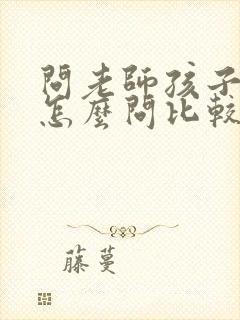 問老師孩子
怎麼問比較
藤蔓